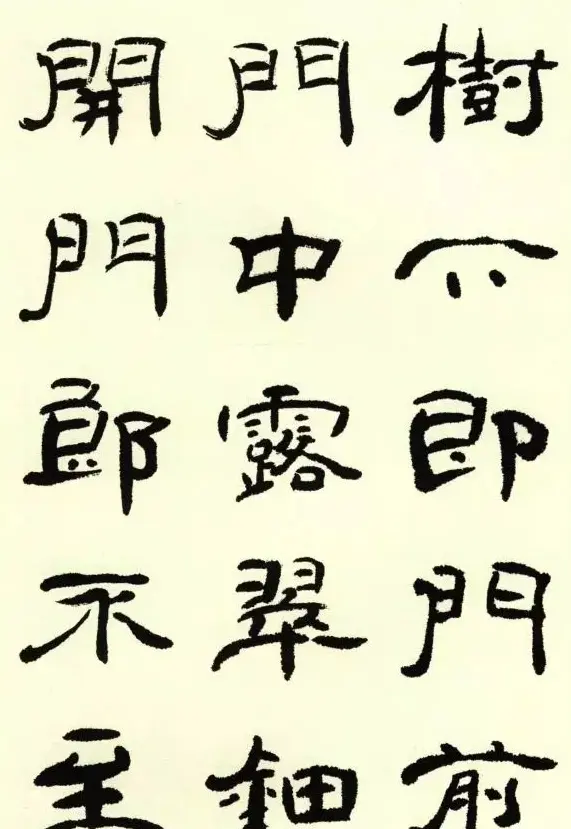 樹下即門前
門中露翠鈿
開門郎不至